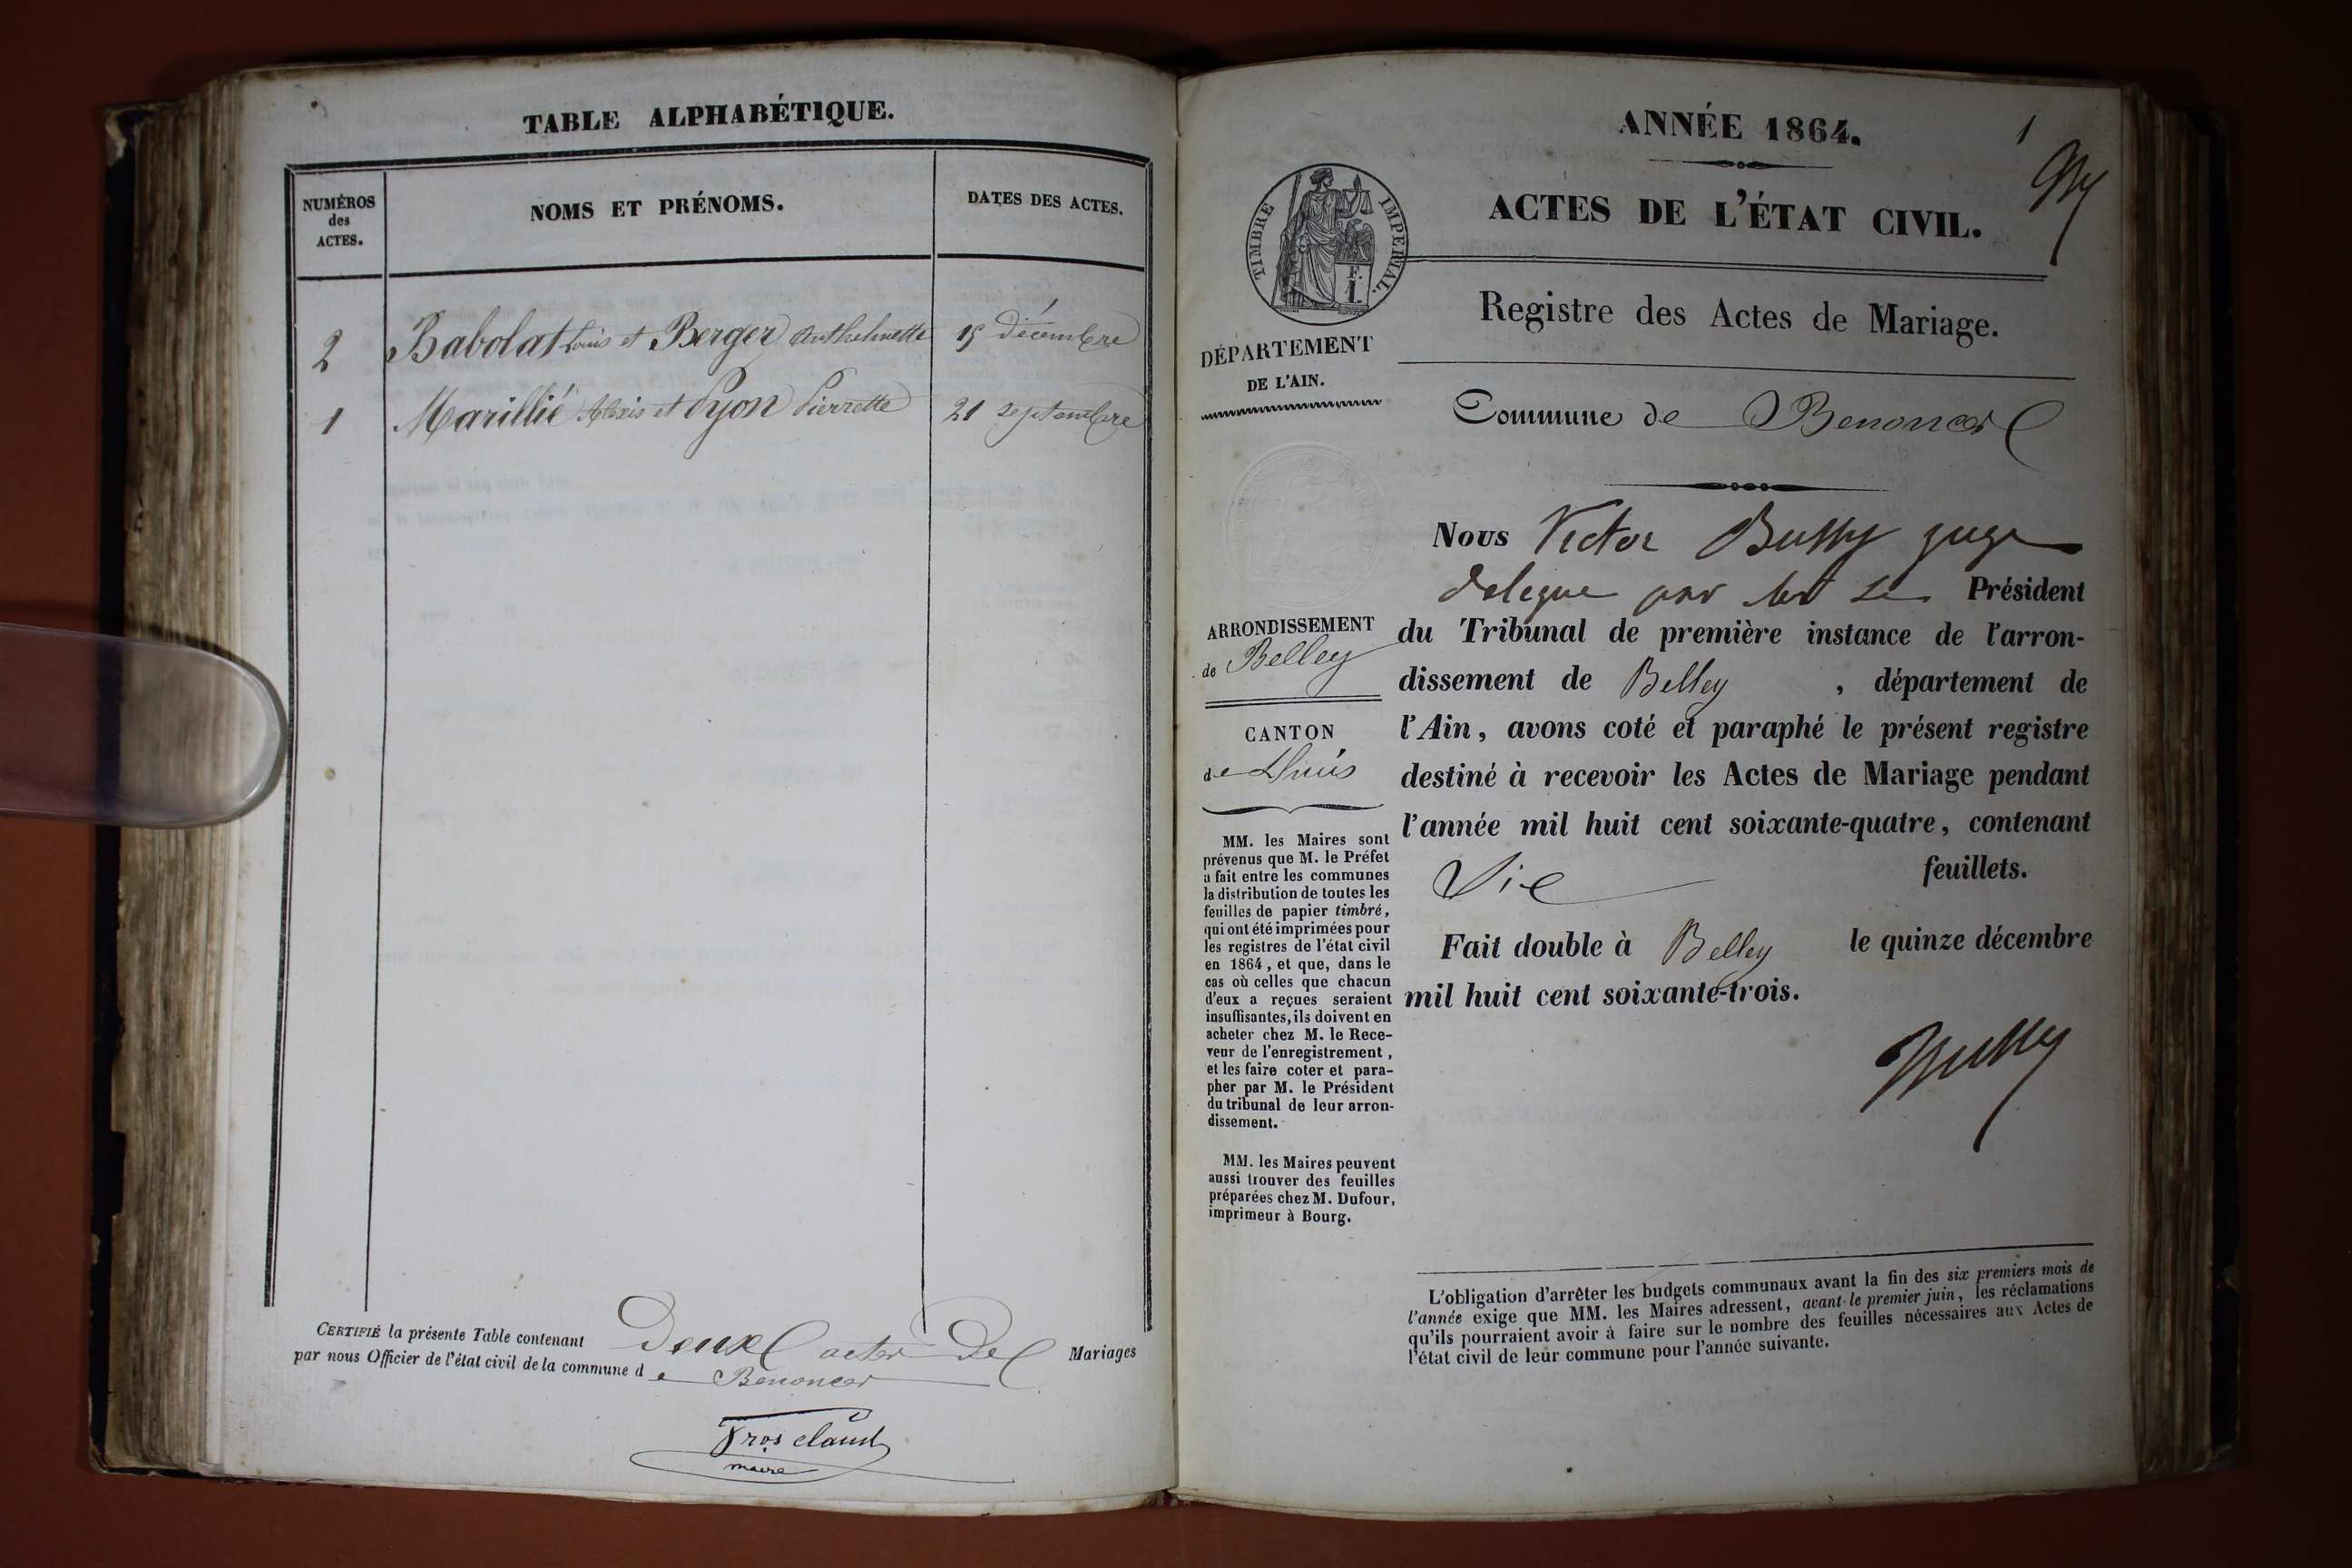 TABLE ALPHABÉTIQUE.
NUMÉROS
des
ACTES.
NOMS ET PRÉNOMS.
DATES DES ACTES.
2 Babolat Louis et Berger Anthelmette 15 décembre
1 Marillié Alexis et Pyon Pierrette 21 septembre
CERTIFIÉ la présente Table contenant Deux actes De Mariages
par nous Officier de l'état civil de la commune de Benonces
Fros claud
maire
ANNÉE 1864.
1
ACTES DE L'ÉTAT CIVIL.
TIMBRE IMPERIAL.
Registre des Actes de Mariage.
DÉPARTEMENT
DE L'AIN.
Commune de Benonces
Nous Victor Bussy juge
délégué par Président
ARRONDISSEMENT
de Belley
du Tribunal de première instance de l'arron-
dissement de Belley , département de
l'Ain, avons coté et paraphé le présent registre
destiné à recevoir les Actes de Mariage pendant
l'année mil huit cent soixante-quatre, contenant
Six feuillets.
Fait double à Belley le quinze décembre
mil huit cent soixante-trois.
Bussy
CANTON
de Lhuis
MM. les Maires sont
prévenus que M. le Préfet
a fait entre les communes
la distribution de toutes les
feuilles de papier timbré,
qui ont été imprimées pour
les registres de l'état civil
en 1864, et que, dans le
cas où celles que chacun
d'eux a reçues seraient
insuffisantes, ils doivent en
acheter chez M. le Rece-
veur de l'enregistrement,
et les faire coter et para-
pher par M. le Président
du tribunal de leur arron-
dissement.
MM. les Maires peuvent
aussi trouver des feuilles
préparées chez M. Dufour,
imprimeur à Bourg.
L'obligation d'arrêter les budgets communaux avant la fin des six premiers mois de
l'année exige que MM. les Maires adressent, avant le premier juin, les réclamations
qu'ils pourraient avoir à faire sur le nombre des feuilles nécessaires aux Actes de
l'état civil de leur commune pour l'année suivante.